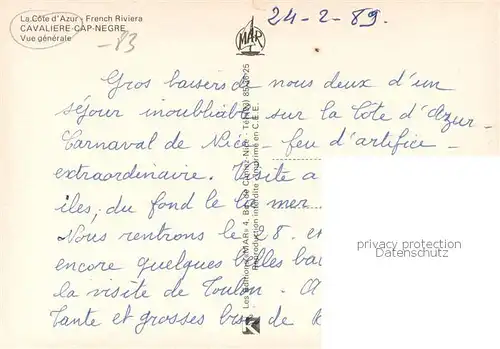 La Côte d'Azur - French Riviera
CAVALIERE-CAP-NEGRE
Vue générale
-83
MAR
24-2-89.
Gros baisers de nous deux d'un
séjour inoubliable sur la Côte d'Azur -
Carnaval de Nice - feu d'artifice -
extraordinaire. Visite a
îles, du fond de la mer...
Nous rentrons le 28. et
encore quelques belles ba
la visite de Toulon.
Tante et grosses bises de
Les Editions «MAR» 4, Bd de Cimiez-Nice
Reproduction interdite Imprimé en C.E.E.
privacy protection
Datenschutz
K